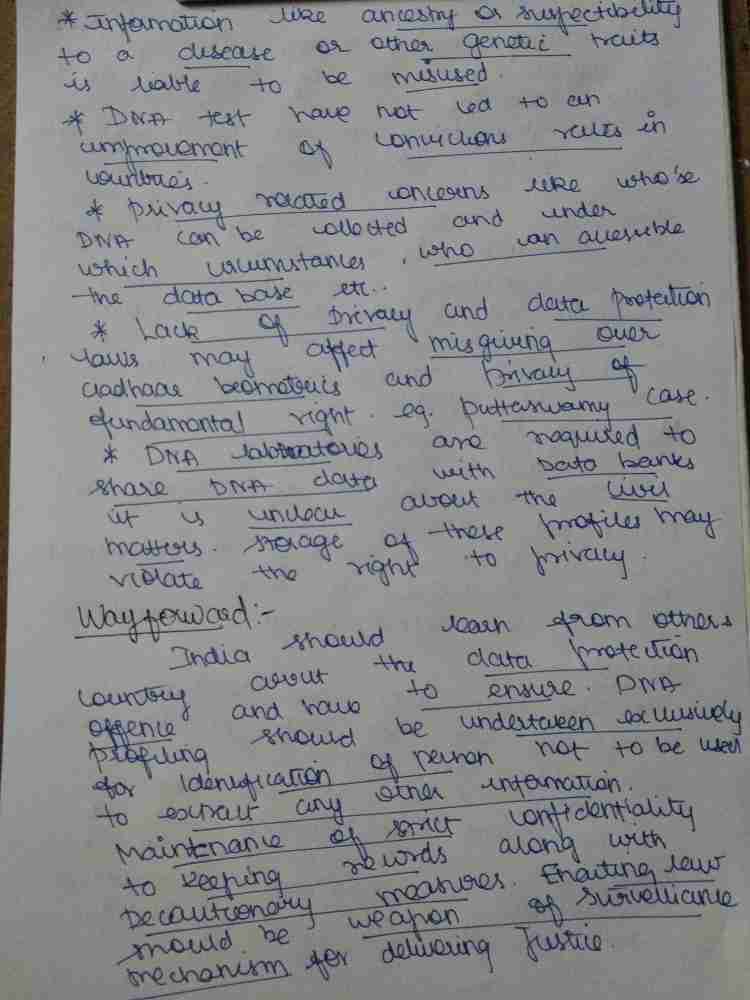 * Information like ancestry or suspectibility
to a disease or other genetic traits
is liable to be misused.
* DNA test have not led to an
improvement of convictions rates in
countries.
* privacy related concerns like who's
DNA can be collected and under
which circumstances, who can accessible
the data base etc..
* Lack of privacy and data protection
laws may affect misgiving over
aadhaar beometrics and privacy of
fundamental right. eg. puttaswamy case.
* DNA laboratories are required to
share DNA data with Data banks
it is unclear about the civil
matters. storage of these profiles may
violate the right to privacy.
Wayforward:-
India should learn from others
country about the data protection
offence and have to ensure. DNA
profiling should be undertaken exclusively
for identification of person not to be used
to extract any other information.
Maintenance of strict confidentiality
to keeping records along with
precautionary measures. Enacting law
should be weapon of surveillance
mechanism for delivering Justice.